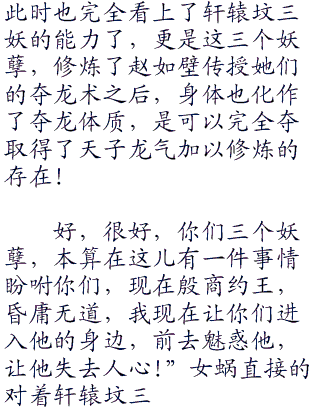 此时也完全看上了轩辕坟三
妖的能力了，更是这三个妖
孽，修炼了赵如壁传授她们
的夺龙术之后，身体也化作
了夺龙体质，是可以完全夺
取得了天子龙气加以修炼的
存在！
好，很好，你们三个妖
孽，本算在这儿有一件事情
盼咐你们，现在殷商约王，
昏庸无道，我现在让你们进
入他的身边，前去魅惑他，
让他失去人心！”女蜗直接的
对着轩辕坟三